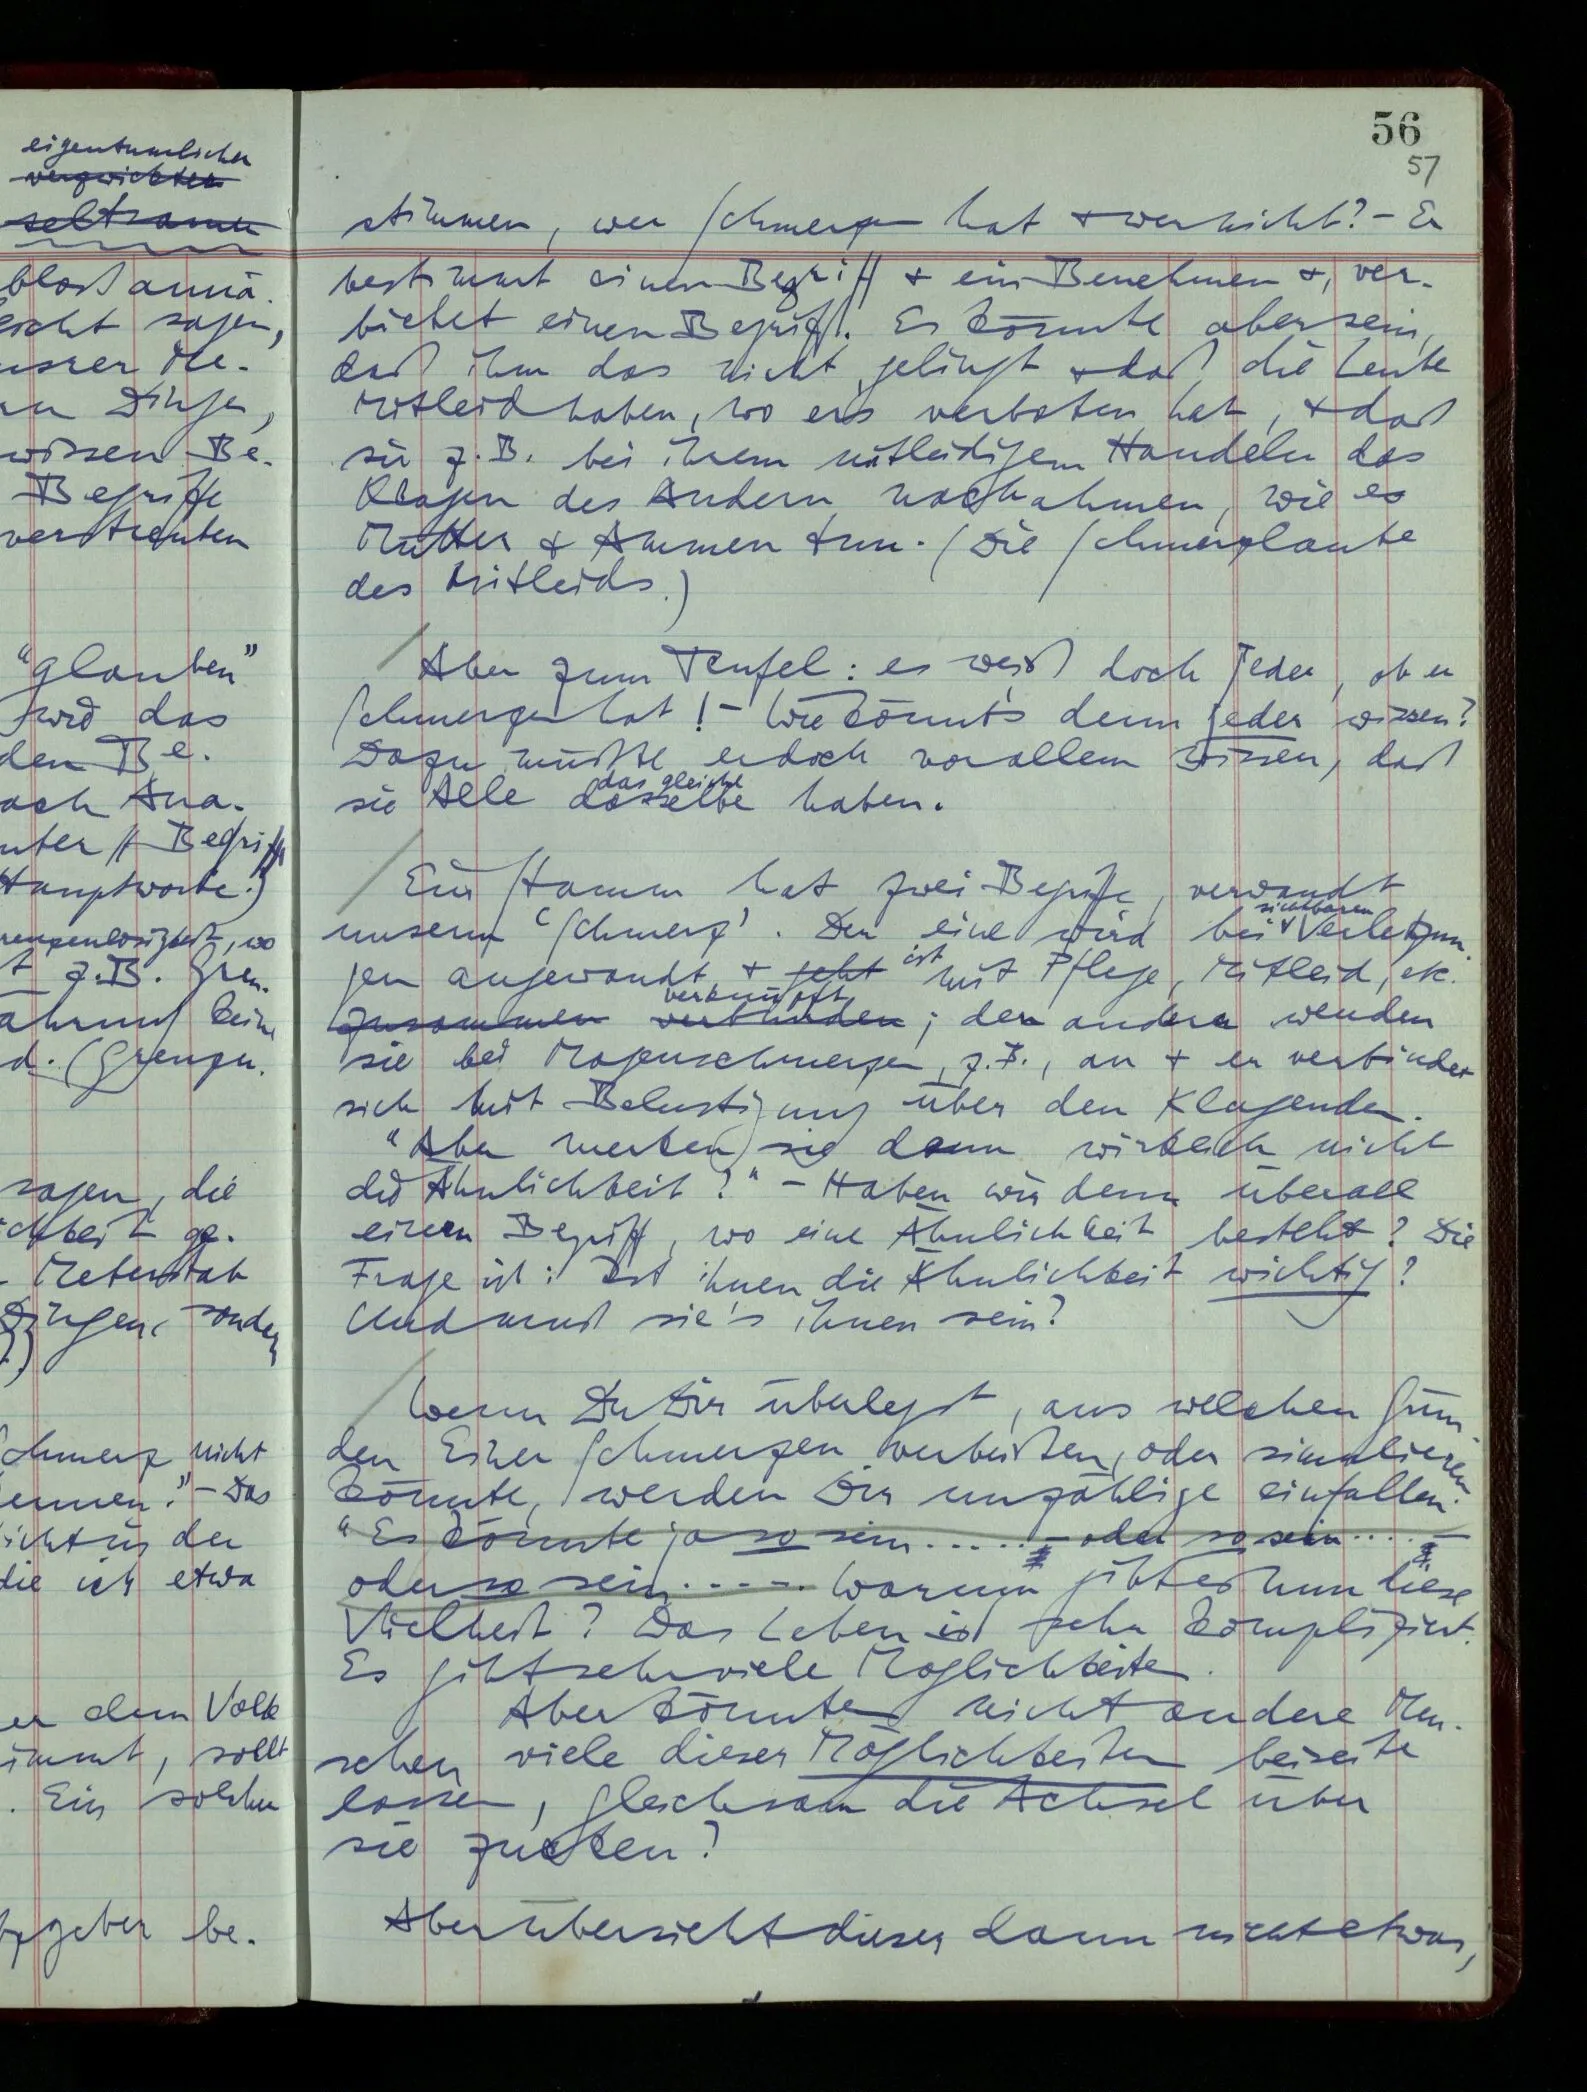 eigentümlicher
verzwickten
seltsamen
bloß annä-
sagen,
unsrer Me-
Dinge,
wissen Be-
Begriffe
verstreuten
"glauben"
wird das
den Be-
nach Ana-
unter Begriff
Hauptworte.)
renzenlosigkeit, wo
z.B. Gren-
während keine
d. (Grenzen.
sagen, die
ichkeit ge-
Meterstab
Dingen, sondern
Schmerz nicht
kennen." – Das
nicht in der
die ich etwa
er dem Volk
nimmt, sollt
. Ein solcher
tzgeber be-
56
57
stimmen, wer Schmerzen hat & wer nicht? – Er
bestimmt einen Begriff & ein Benehmen &, ver-
bietet einen Begriff. Es könnte aber sein,
daß ihm das nicht gelingt & daß die Leute
Mitleid haben, wo er's verboten hat, & daß
sie z.B. bei ihrem mitleidigem Handeln das
Klagen des Andern nachahmen, wie es
Mütter & Ammen tun. (Die Schmerzlaute
des Mitleids.)
Aber zum Teufel: es weiß doch Jeder, ob er
Schmerzen hat! – Wie könnt's denn jeder wissen?
Dazu müßte er doch vor allem wissen, daß
das gleiche
sie Alle dasselbe haben.
Ein Stamm hat zwei Begriffe, verwandt
sichtbaren
unserm 'Schmerz'. Der eine wird bei Verletzun-
ist
gen angewandt & geht mit Pflege, Mitleid, etc.
verknüpft
zusammen verbunden; den andern wenden
sie bei Magenschmerzen, z.B., an & er verbindet
sich mit Belustigung über den Klagenden.
"Aber merken sie denn wirklich nicht
die Ähnlichkeit?" – Haben wir denn überall
einen Begriff, wo eine Ähnlichkeit besteht? Die
Frage ist: Ist ihnen die Ähnlichkeit wichtig?
Und muß sie's ihnen sein?
Wenn Du Dir überlegst, aus welchen Grün-
den Einer Schmerzen verbeißen, oder simulieren
könnte, werden Dir unzählige einfallen.
"Es könnte ja so sein..... – oder so sein.... –
oder so sein..... Warum gibt es nun diese
Vielheit? Das Leben ist sehr kompliziert.
Es gibt sehr viele Möglichkeiten.
Aber könnten nicht andere Men-
schen viele dieser Möglichkeiten beiseite
lassen, gleichsam die Achsel über
sie zucken?
Aber übersieht dieser dann nicht etwas,